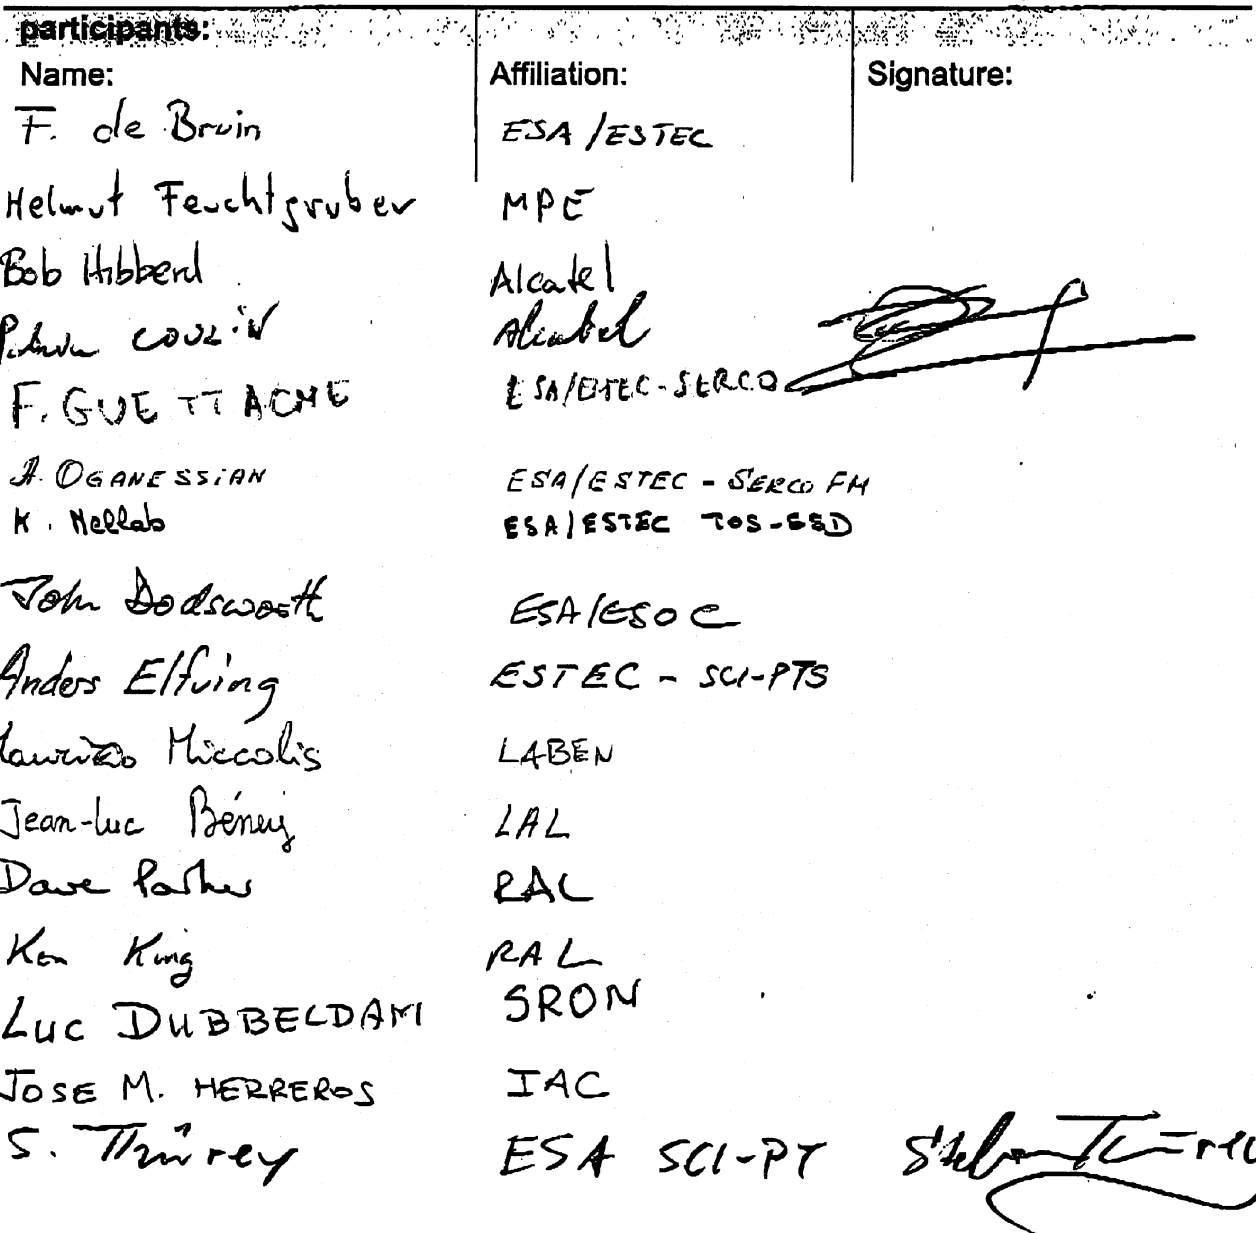 participants:
Name: Affiliation: Signature:
F. de Bruin ESA/ESTEC
Helmut Feuchtgruber MPE
Bob Hibberd Alcatel
COUZIN Alcatel
F. GUETTACHE ESA/ESTEC-SERCO
A. OGANESSIAN ESA/ESTEC - SERCO FM
K. Mellab ESA/ESTEC TOS-ESD
John Dodsworth ESA/ESOC
Anders Elfving ESTEC - SCI-PTS
Maurizio Miccolis LABEN
Jean-Luc Bény LAL
Dave Parker RAL
Ken King RAL
Luc DUBBELDAM SRON
JOSE M. HERREROS IAC
S. Thürey ESA SCI-PT Stefan Thürey